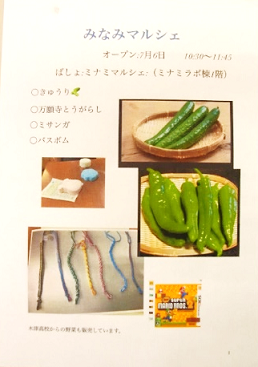 みなみマルシェ
オープン:7月6日 10:30～11:45
ばしょ:ミナミマルシェ:（ミナミラボ棟1階）
〇きゅうり
〇万願寺とうがらし
〇ミサンガ
〇バスボム
SUPER
MARIO BROS.
高校からの野菜も販売しています。